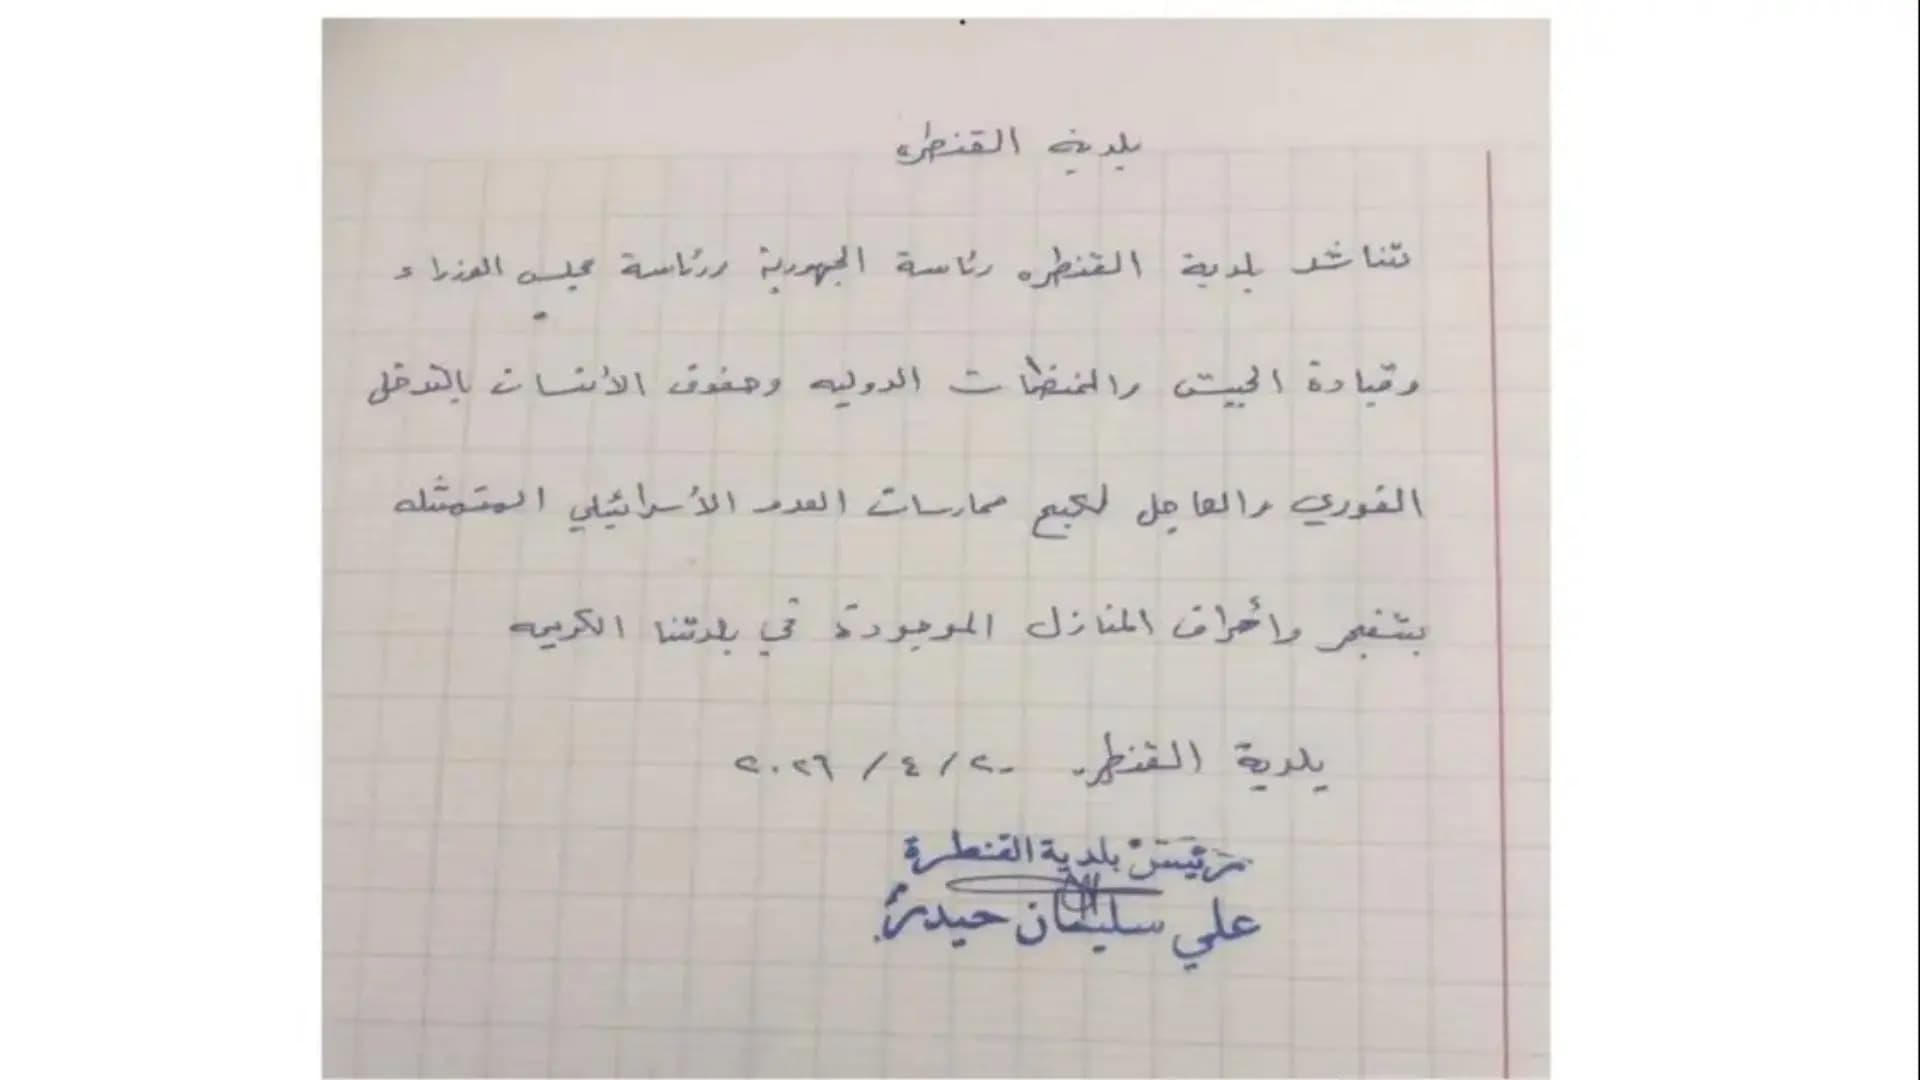 بلدية القنطره
تناشد بلدية القنطره رئاسة الجهورية ورئاسة مجلس الوزراء
وقيادة الجيش والمنظمات الدوليه وحقوق الأنسان بالتدخل
الفوري والعاجل لكبح ممارسات العدو الأسرائيلي المتمثله
بتفجير وأحراق المنازل الموجودة في بلدتنا الكريمه
بلدية القنطره ٢٠ / ٤ / ٢٠٢٦
رئيس بلدية القنطرة
علي سليمان حيدر